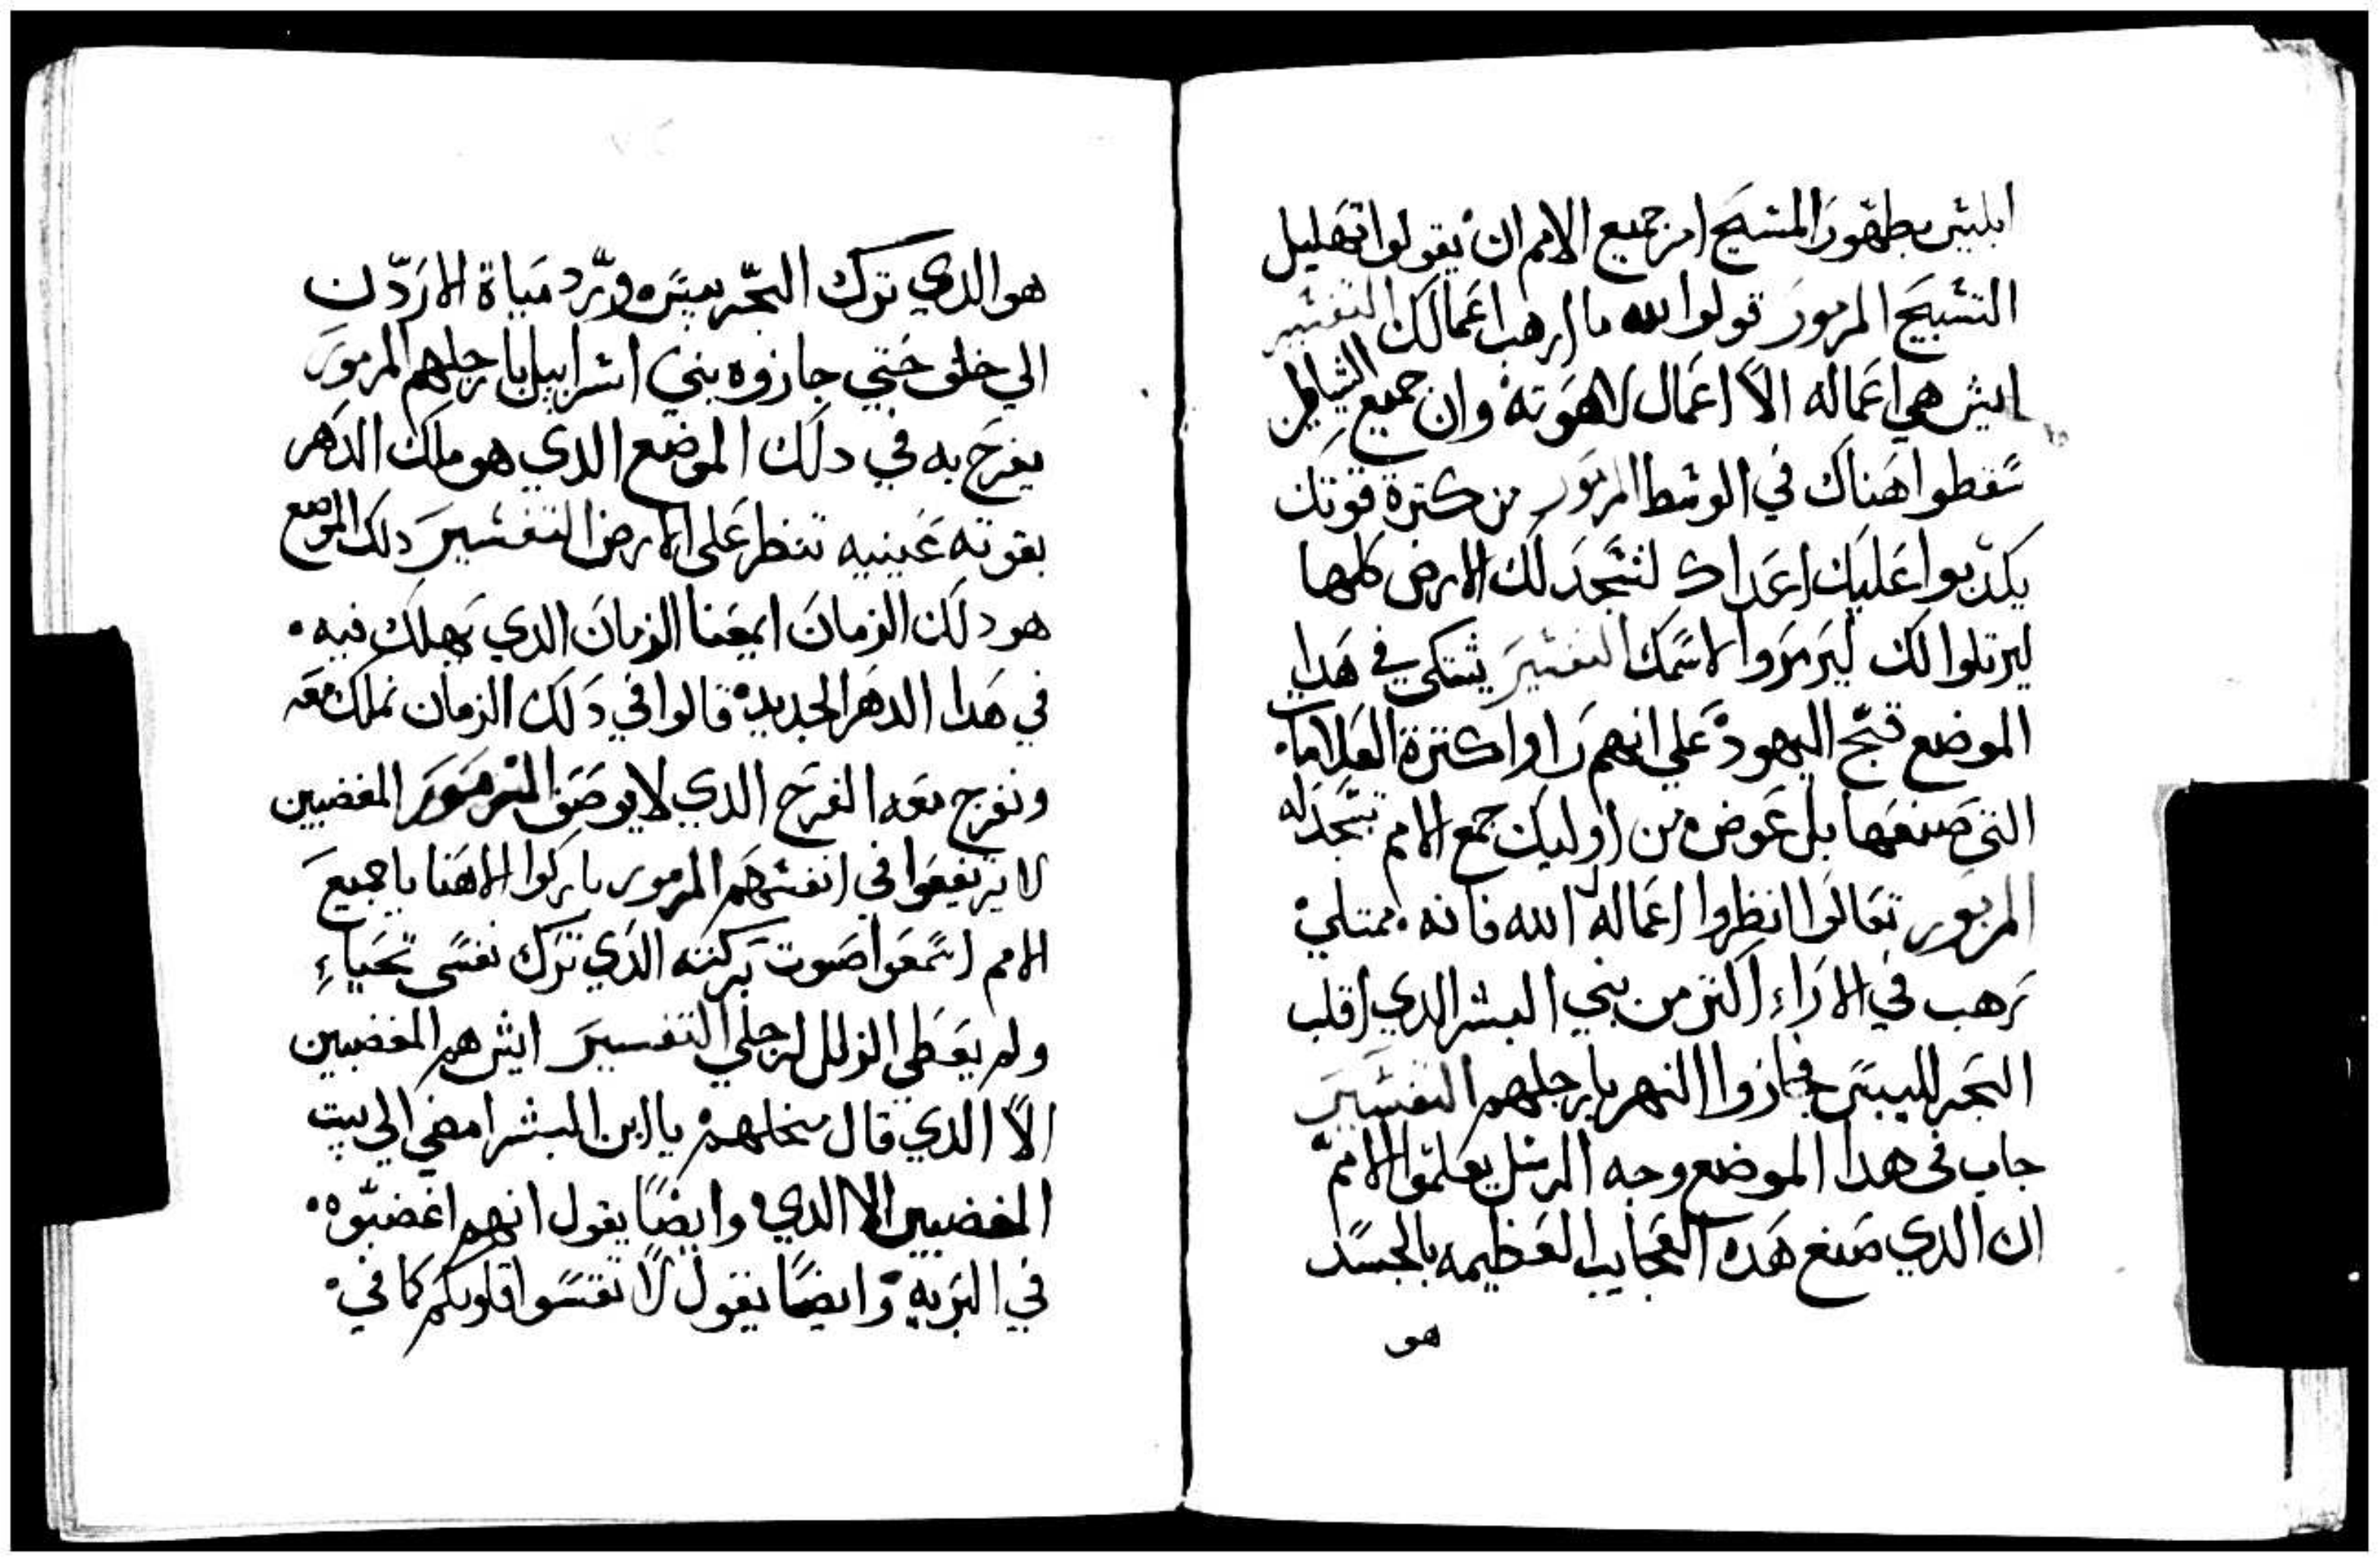 ابليس بظهور المسيح امر جميع الامم ان يقولوا تهليل
التسبيح المزمور قولوا لله ما ارهب اعمالك التفسير
ايش هي اعماله الا اعمال لاهوته وان جميع الشياطين
سقطوا هناك في الوسط المزمور من كترة قوتك
يكدبوا عليك اعداك لتسجد لك الارض كلها
ليرتلوا لك ليزمروا لاسمك التفسير يشتكي في هدا
الموضع قبح اليهود علي انهم راوا كترة العلامات
التي صنعها بل عوض من اوليك جمع الامم تسجد له
المزمور تعالوا انظروا اعمال الله فانه ممتلي
رهب في الاراء اكتر من بني البشر الدي اقلب
البحر لليبس فجازوا النهر بارجلهم التفسير
جاب في هدا الموضع وجه الرسل يعلموا الامم
ان الدي صنع هده العجايب العظيمه بالجسد
هو
هو الدي ترك البحر يبس ورد مياة الاردن
الي خلف حتي جازوه بني اسراييل بارجلهم المزمور
يفرح به في دلك الموضع الدي هو ملك الدهر
بقوته عينيه تنظر علي الارض التفسير دلك الموضع
هو دلك الزمان ايعنا الزمان الدي يهلك فيه
في هدا الدهر الجديد قالوا في دلك الزمان نملك معه
ونفرح معه الفرح الدي لا يوصف المزمور المغضبين
لا يرتفعوا في انفسهم المزمور باركوا الاهنا يا جميع
الامم اسمعوا صوت بركته الدي ترك نفسي تحياء
ولم يعطي الزلل لرجلي التفسير ايش هم المغضبين
الا الدي قال منجلهم يا ابن البشر امضي الي بيت
المغضبين الا الدي وايضا يقول انهم اغضبوه
في البريه وايضا يقول لا تقسوا قلوبكم كما في